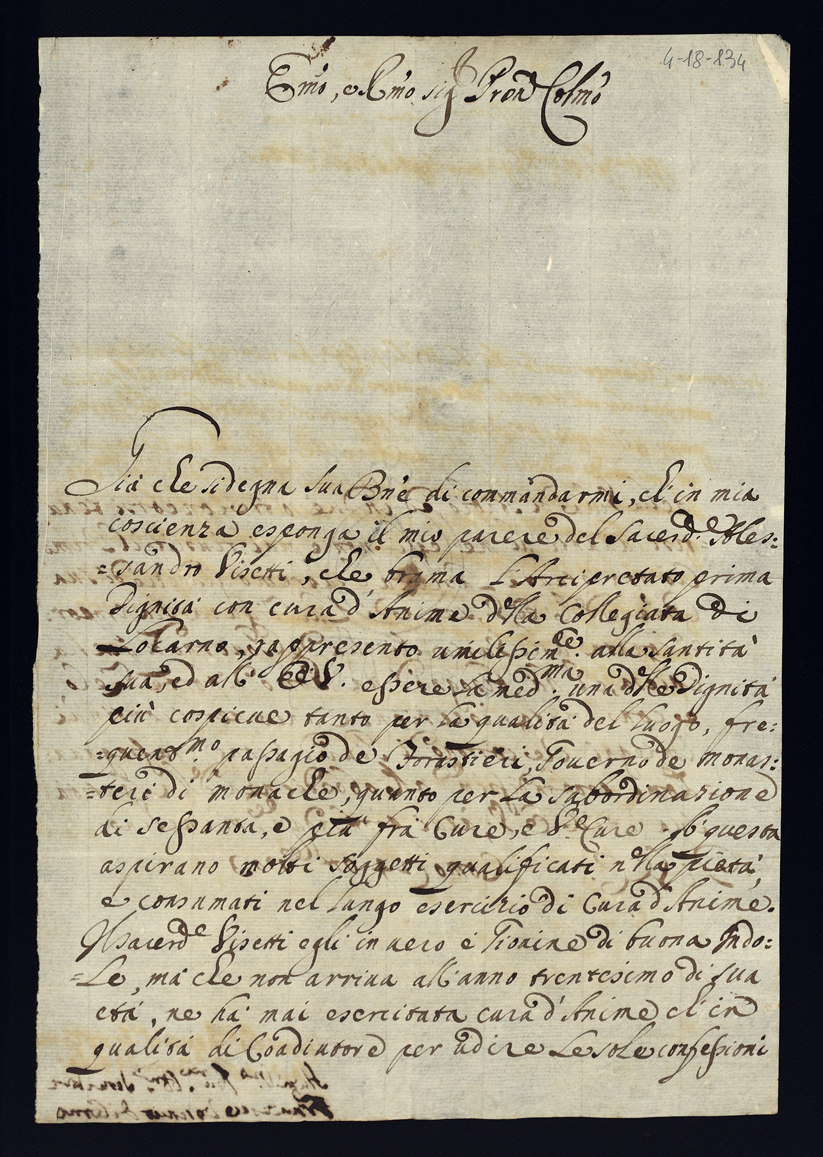 4-18-134
Emo, e Rmo sig.r Pron Colmo
Già che si degna Sua Bne di commandarmi, ch'in mia
coscienza esponga il mio parere del Sacerd.e Ales:
=sandro Visetti, che brama l'Arcipretato prima
Dignità con cura d'Anime della Collegiata di
Locarno, rappresento umilissim.te alla Santità
Sua, ed all' E.V. essere la med.ma una delle Dignità
più cospicue tanto per la qualità del luogo, fre:
=quent.mo passagio de Forastieri, Governo de monas:
=teri di monache, quanto per la subordinazione
di sessanta, e più frà Cure, e V.e Cure. A questa
aspirano molti soggetti qualificati nella pietà,
e consumati nel lungo esercizio di Cura d'Anime.
Il Sacerd.e Visetti egli in vero è Giovine di buona Indo:
=le, mà che non arriva all'anno trentesimo di sua
età, ne hà mai esercitata cura d'Anime ch'in
qualità di Coadiutore per udire le sole confessioni